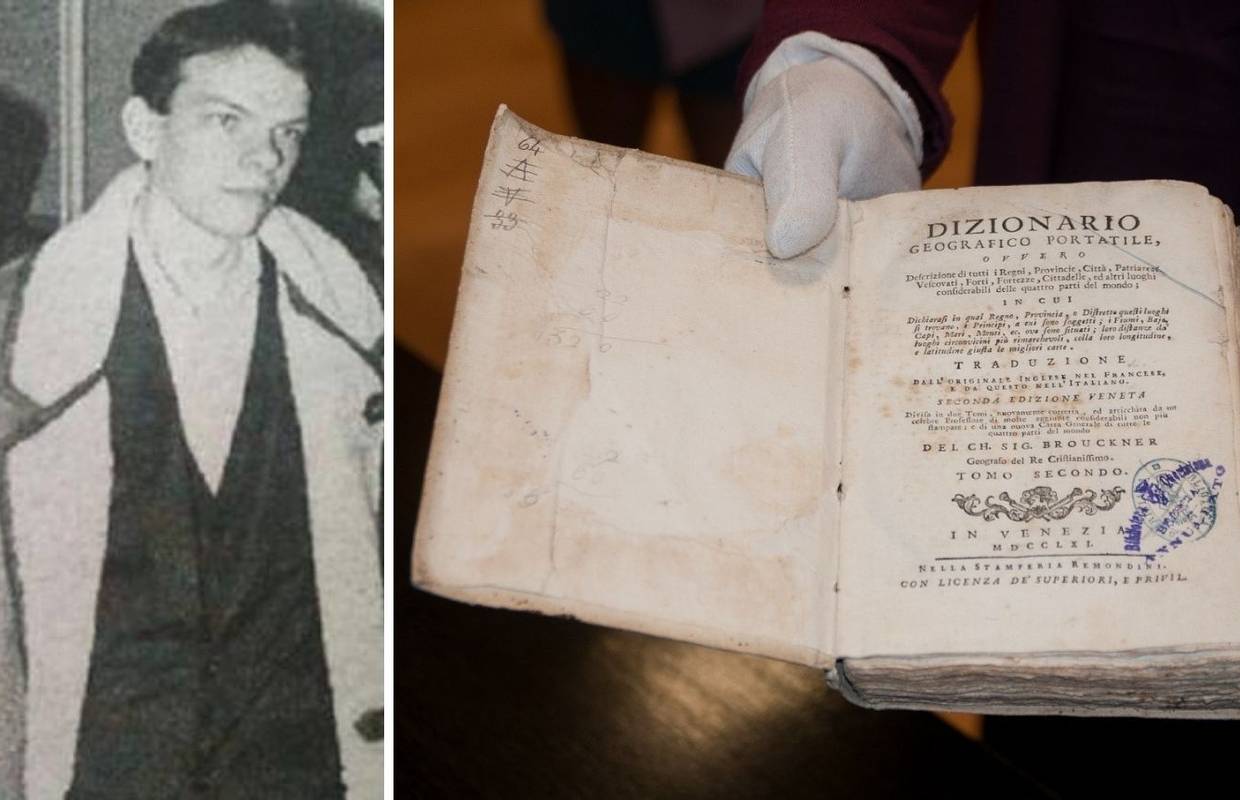 64
A
V
33
DIZIONARIO
GEOGRAFICO PORTATILE,
OVVERO
Deſcrizione di tutti i Regni, Provincie, Città, Patriarcati,
Veſcovati, Forti, Fortezze, Cittadelle, ed altri luoghi
conſiderabili delle quattro parti del mondo;
IN CUI
Dichiaraſi in qual Regno, Provincia, e Diſtretto queſti luoghi
ſi trovano, i Principi, a cui ſono ſoggetti; i Fiumi, Baje,
Capi, Mari, Monti, ec. ove ſono ſituati; loro diſtanze da'
luoghi circonvicini più rimarchevoli, colla loro longitudine,
e latitudine giuſta le migliori carte.
TRADUZIONE
DALL'ORIGINALE INGLESE NEL FRANCESE,
E DA QUESTO NELL'ITALIANO.
SECONDA EDIZIONE VENETA
Diviſa in due Tomi, nuovamente corretta, ed arricchita da un
celebre Profeſſore di molte aggiunte conſiderabili non più
ſtampate; e di una nuova Carta Generale di tutte le
quattro parti del mondo
DEL CH. SIG. BROUCKNER
Geografo del Re Criſtianiſſimo.
TOMO SECONDO.
IN VENEZIA
MDCCLXI.
NELLA STAMPERIA REMONDINI.
CON LICENZA DE' SUPERIORI, E PRIVIL.
Biblioteca Queriniana
BRESCIA
ANNULLATO